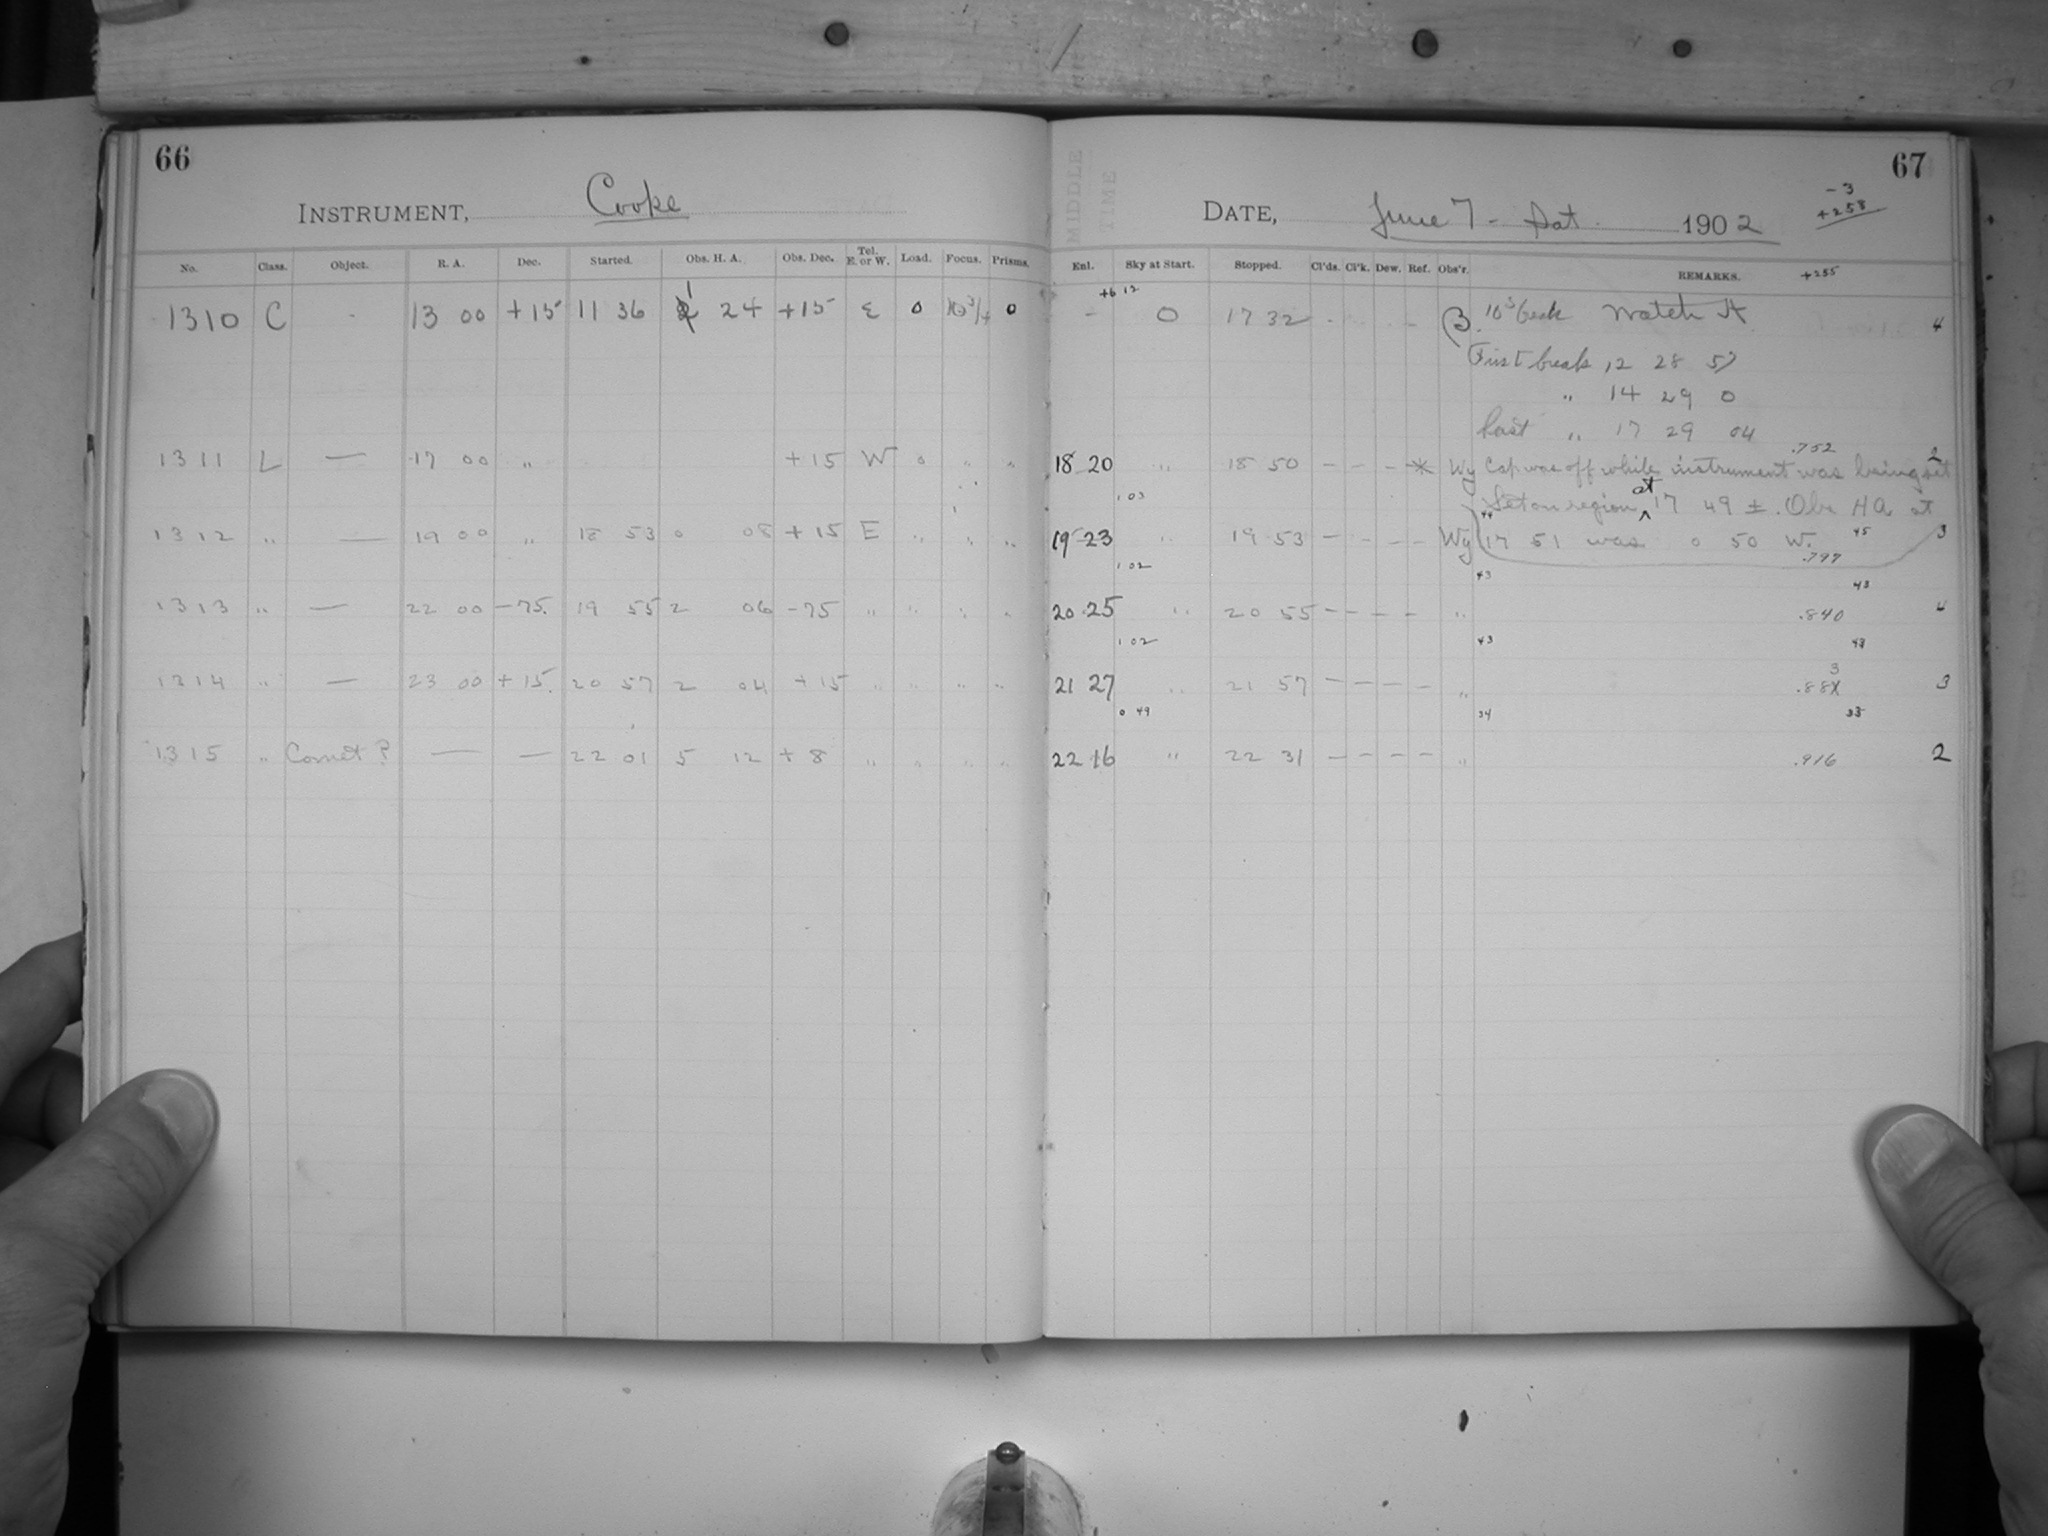 66
INSTRUMENT, Cooke
No. Class. Object. R. A. Dec. Started. Obs. H. A. Obs. Dec. Tel. E. or W. Load. Focus. Prisms.
1310 C - 13 00 +15 11 36 1 24 +15 E 0 10 3/4 0
1311 L — 17 00 " +15 W 0 " "
1312 " — 19 00 " 18 53 0 08 +15 E " " "
1313 " — 22 00 -75. 19 55 2 06 -75 " " " "
1314 " — 23 00 +15. 20 57 2 04 +15 " " " "
1315 " Comet ? — — 22 01 5 12 +8 " " " "
67
MIDDLE TIME
DATE, June 7 - Sat. 1902
-3
+258
+255
Enl. Sky at Start. Stopped. Cl'ds. Cl'k. Dew. Ref. Obs'r. REMARKS.
+6 12
- 0 17 32 - - B. 10s break Watch A 4
First break 12 28 57
" 14 29 0
Last " 17 29 04
.752
18 20 " 18 50 — — — * Wy Cap was off while instrument was being set 2
1 03
Set on region at 17 49 ±. Obs HA at
44
19 23 " 19 53 — — — — Wy 17 51 was 0 50 W. 45 3
1 02
.797
43 43
20 25 " 20 55 — — — — " .840 4
1 02 43 43
3
21 27 " 21 57 — — — — " .88 3
0 49 34 33
22 16 " 22 31 — — — — " .916 2